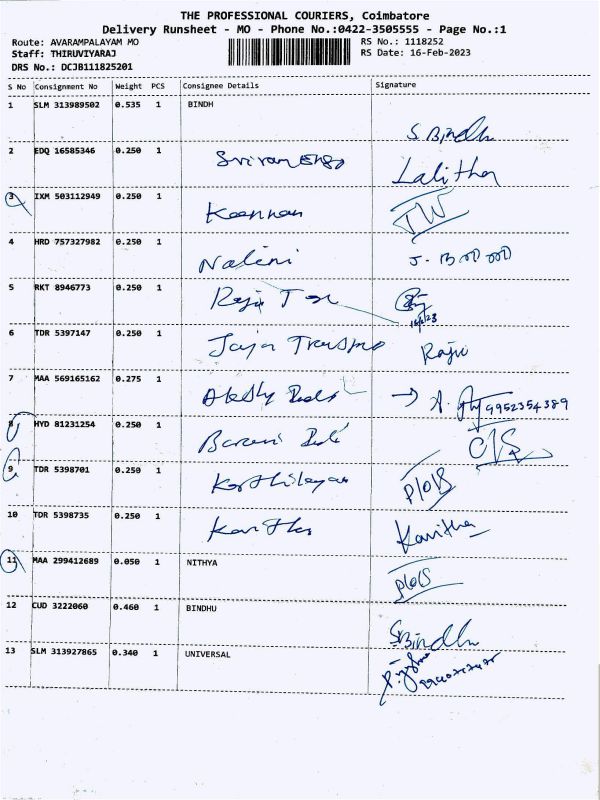 THE PROFESSIONAL COURIERS, Coimbatore
Delivery Runsheet - MO - Phone No.:0422-3505555 - Page No.:1
Route: AVARAMPALAYAM MO RS No.: 1118252
Staff: THIRUVIYARAJ RS Date: 16-Feb-2023
DRS No.: DCJB111825201
S No Consignment No Weight PCS Consignee Details Signature
1 SLM 313989502 0.535 1 BINDH S. Bindhu
2 EDQ 16585346 0.250 1 Lalitha
3 IXM 503112949 0.250 1 Kannan TW
4 HRD 757327982 0.250 1 Nalini
5 RKT 8946773 0.250 1 Raja
6 TDR 5397147 0.250 1 Raju
7 MAA 569165162 0.275 1 → 9952354389
8 HYD 81231254 0.250 1
9 TDR 5398701 0.250 1
10 TDR 5398735 0.250 1 Kavitha Kavitha
11 MAA 299412689 0.050 1 NITHYA
12 CUD 3222060 0.460 1 BINDHU S. Bindhu
13 SLM 313927865 0.340 1 UNIVERSAL